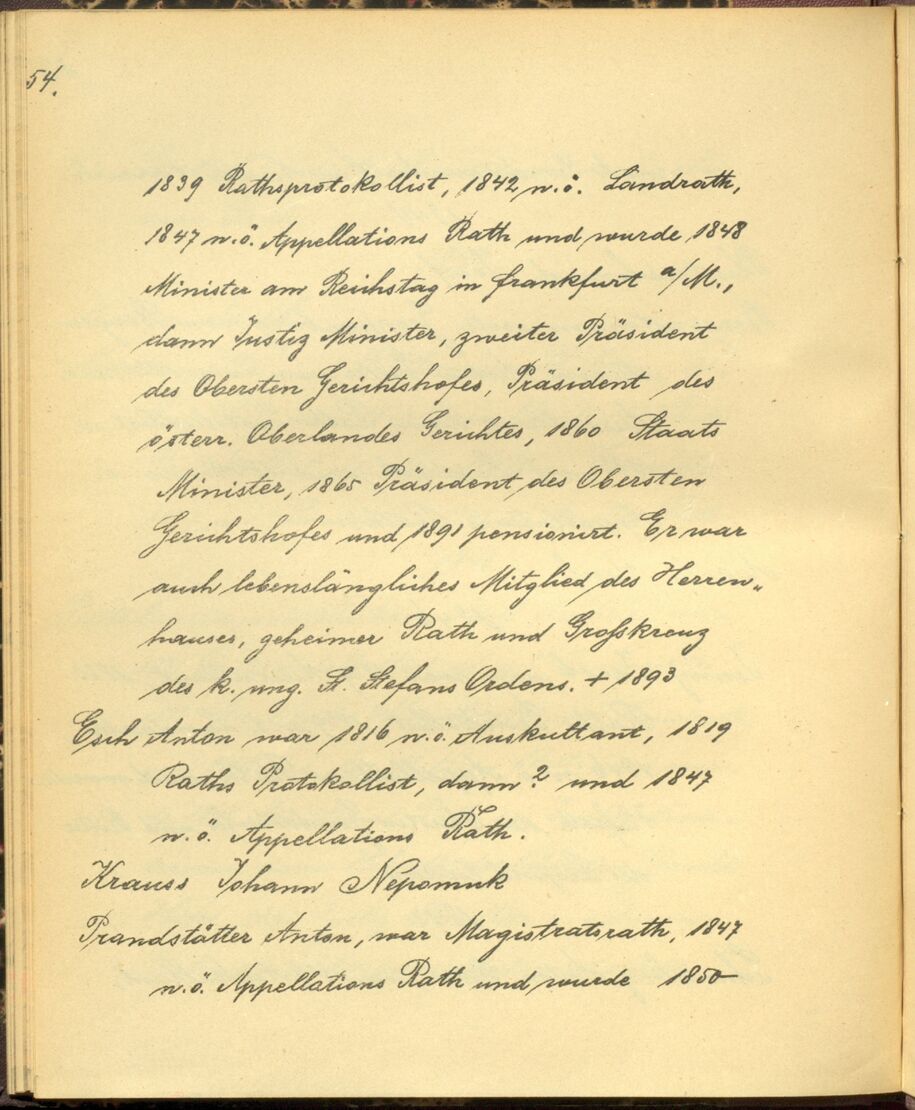 54.
1839 Rathsprotokollist, 1842 n.ö. Landrath,
1847 n.ö. Appellations Rath und wurde 1848
Minister am Reichstag in Frankfurt a/M.,
dann Justiz Minister, zweiter Präsident
des Obersten Gerichtshofes, Präsident des
österr. Oberlandes Gerichtes, 1860 Staats
Minister, 1865 Präsident des Obersten
Gerichtshofes und 1891 pensionirt. Er war
auch lebenslängliches Mitglied des Herren„
hauses, geheimer Rath und Großkreuz
des k. ung. St. Stefans Ordens. + 1893
Esch Anton war 1816 n.ö. Auskultant, 1819
Raths Protokollist, dann ? und 1847
n.ö. Appellations Rath.
Krauss Johann Nepomuk
Prandstätter Anton, war Magistratsrath, 1847
n.ö. Appellations Rath und wurde 1850